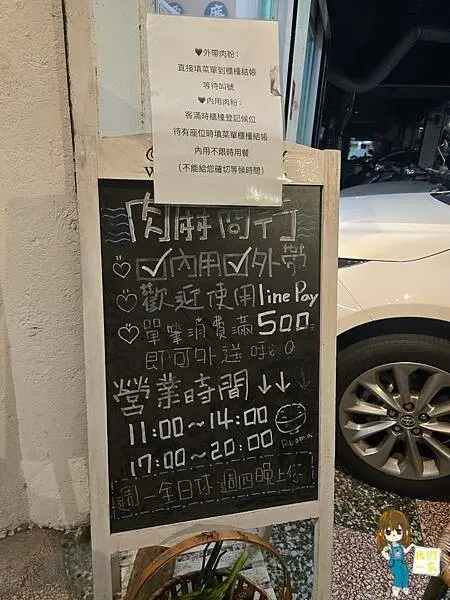 ♥外帶肉粉：
直接填菜單到櫃檯結帳
等待叫號
♥內用肉粉：
客滿時櫃檯登記候位
待有座位時填菜單櫃檯結帳
內用不限時用餐
(不能給您確切等候時間)
肉麻商行
♡☑內用☑外帶
♡歡迎使用line Pay
♡單筆消費滿500元
即可外送呼。
營業時間↓↓↓
11:00～14:00
17:00～20:00
Ruoma
週一全日休 週四晚上休
我們
一家